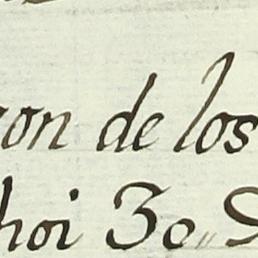 zon de los
hoi 30